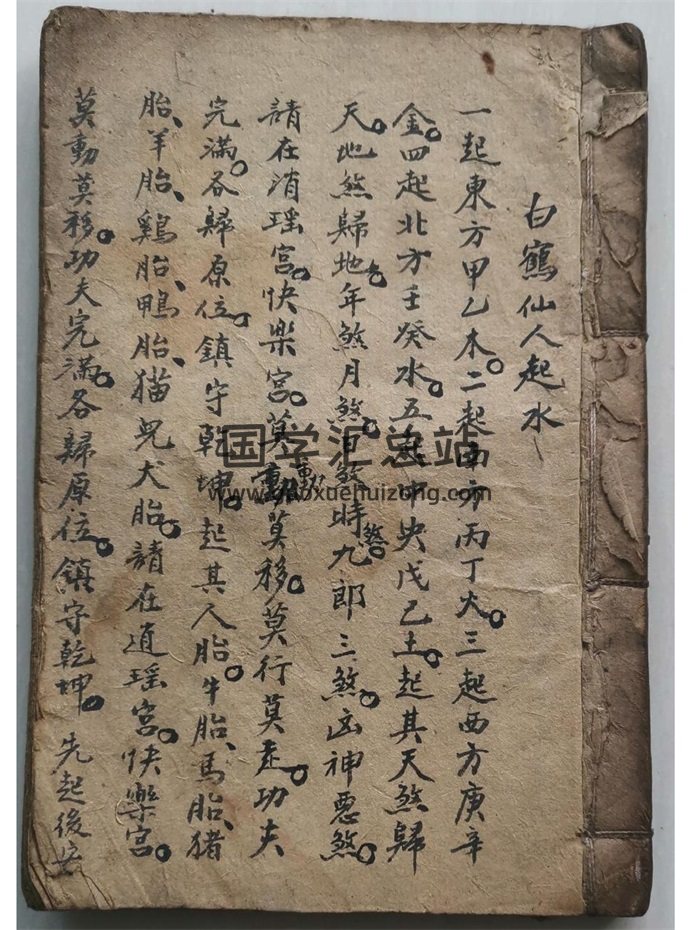 白鶴仙人起水
一起東方甲乙木。二起南方丙丁火。三起西方庚辛
金。四起北方壬癸水。五起中央戊己土。起其天煞歸
天。地煞歸地。年煞月煞。日煞時煞。九郎三煞。凶神惡煞。
請在消瑶宮。快樂宮。莫動莫移。莫行莫走。功夫
完滿。各歸原位。鎮守乾坤。起其人胎。牛胎、馬胎、猪
胎、羊胎、鷄胎、鴨胎、猫兒犬胎。請在逍瑶宮。快樂宮。
莫動莫移。功夫完滿。各歸原位。鎮守乾坤。先起後安
国学汇总站
www.guoxuehuizong.com